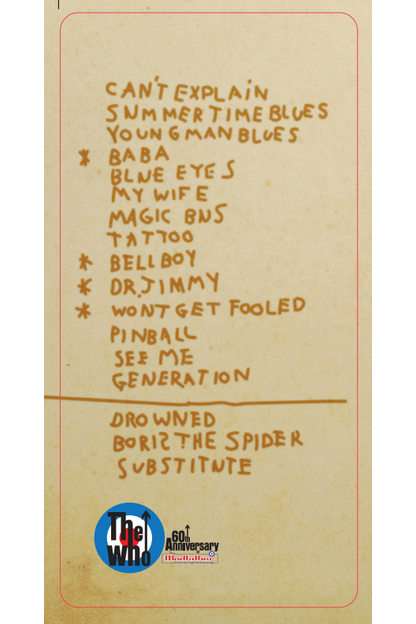 CAN'T EXPLAIN
SUMMERTIME BLUES
YOUNG MAN BLUES
* BABA
BLUE EYES
MY WIFE
MAGIC BUS
TATTOO
* BELLBOY
* DR. JIMMY
* WONT GET FOOLED
PINBALL
SEE ME
GENERATION
DROWNED
BORIS THE SPIDER
SUBSTITUTE
The
Who
60th
Anniversary